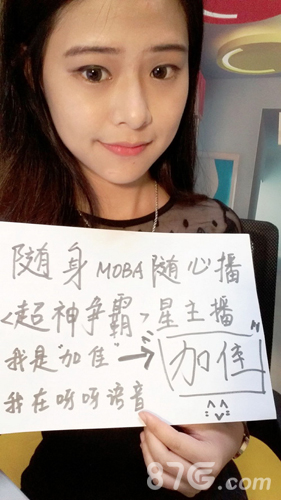 随身MOBA随心播
<超神争霸>星主播
我是"加隹"→加隹
我在呀呀语音
87G.com